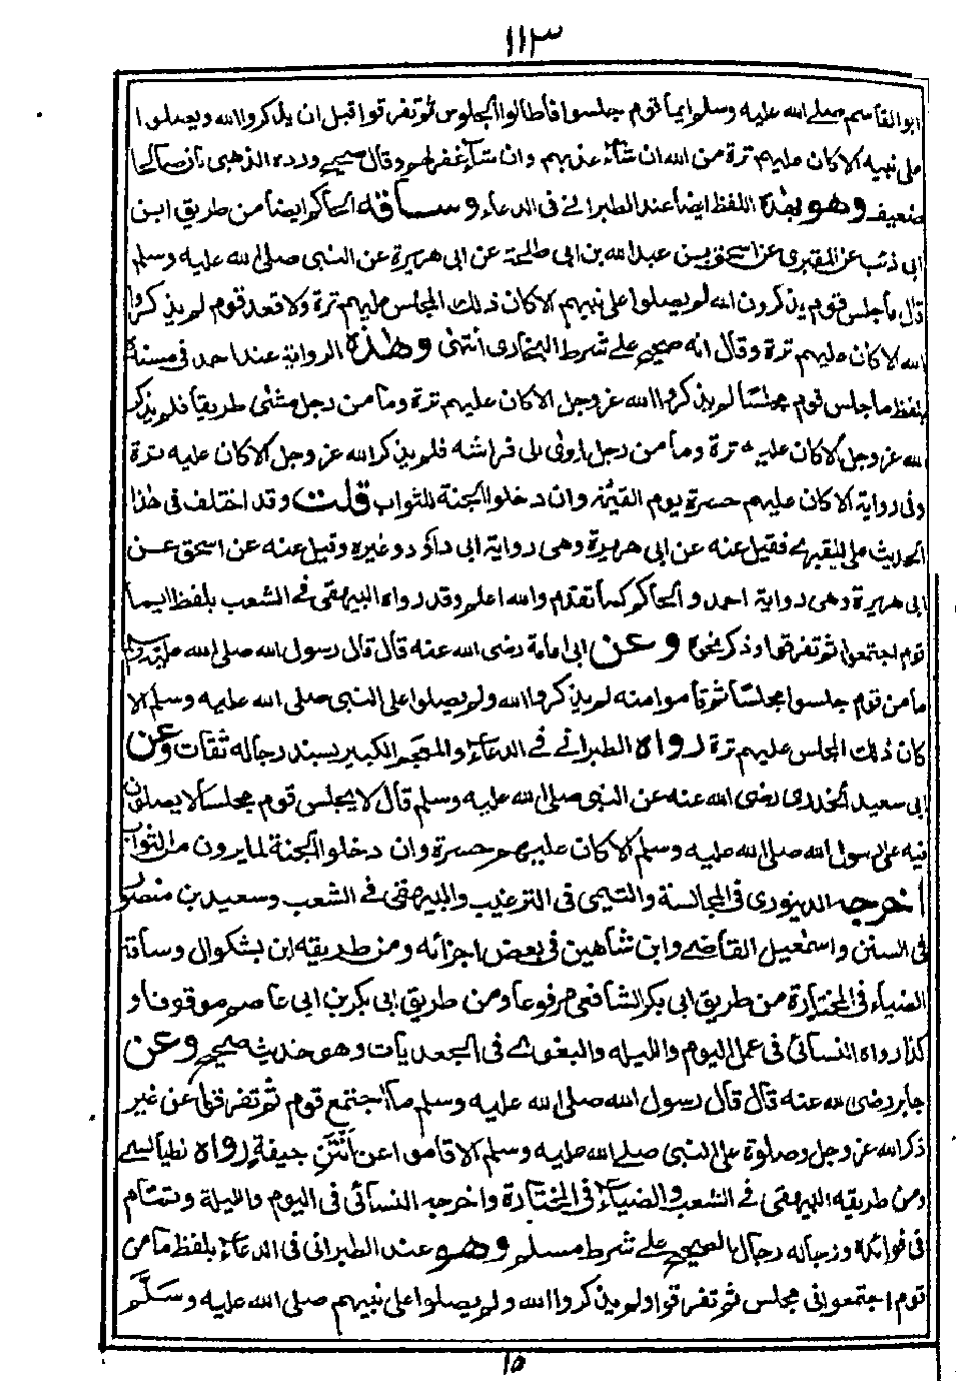 ١١٣
ابو القاسم صلى الله عليه وسلم ايما قوم جلسوا فاطالوا الجلوس ثم تفرقوا قبل ان يذكروا الله ويصلوا
على نبيه الا كان عليهم ترة من الله ان شاء عذبهم وان شاء غفر لهم وقال صحيح ورده الذهبى بان صالحا
ضعيف وهو بهذا اللفظ ايضا عند الطبرانى فى الدعاء وساقه الحاكم ايضا من طريق ابن
ابى ذئب عن المقبرى عن اسحق بن عبد الله بن ابى طلحة عن ابى هريرة عن النبى صلى الله عليه وسلم
قال ما جلس قوم يذكرون الله لم يصلوا على نبيهم الا كان ذلك المجلس عليهم ترة ولا قعد قوم لم يذكروا
الله الا كان عليهم ترة وقال انه صحيح على شرط البخارى انتهى وهذه الرواية عند احمد فى مسنده
بلفظ ما جلس قوم مجلسا لم يذكروا الله عز وجل الا كان عليهم ترة وما من رجل مشى طريقا فلم يذكر
الله عز وجل الا كان عليه ترة وما من رجل اوى الى فراشه فلم يذكر الله عز وجل الا كان عليه ترة
وفى رواية الا كان عليهم حسرة يوم القيمة وان دخلوا الجنة للثواب قلت وقد اختلف فى هذا
الحديث على المقبرى فقيل عنه عن ابى هريرة وهى رواية ابى داود وغيره وقيل عنه عن اسحق عن
ابى هريرة وهى رواية احمد والحاكم كما تقدم والله اعلم وقد رواه البيهقى فى الشعب بلفظ ايما
قوم اجتمعوا ثم تفرقوا وذكر نحوه وعن ابى امامة رضى الله عنه قال قال رسول الله صلى الله عليه وسلم
ما من قوم جلسوا مجلسا ثم قاموا منه لم يذكروا الله ولم يصلوا على النبى صلى الله عليه وسلم الا
كان ذلك المجلس عليهم ترة رواه الطبرانى فى الدعاء والمعجم الكبير بسند رجاله ثقات وعن
ابى سعيد الخدرى رضى الله عنه عن النبى صلى الله عليه وسلم قال لا يجلس قوم مجلسا لا يصلون
فيه على رسول الله صلى الله عليه وسلم الا كان عليهم حسرة وان دخلوا الجنة لما يرون من الثواب
اخرجه الدينورى فى المجالسة والتيمى فى الترغيب والبيهقى فى الشعب وسعيد بن منصور
فى السنن واسمعيل القاضى وابن شاهين فى بعض اجزائه ومن طريقه ابن بشكوال وساقه
الضياء فى المختارة من طريق ابى بكر الشافعى مرفوعا ومن طريق ابى بكر بن ابى عاصم موقوفا و
كذا رواه النسائى فى عمل اليوم والليله والبغوى فى الجعديات وهو حديث صحيح وعن
جابر رضى الله عنه قال قال رسول الله صلى الله عليه وسلم ما اجتمع قوم ثم تفرقوا عن غير
ذكر الله عز وجل وصلوة على النبى صلى الله عليه وسلم الا قاموا عن اَنْتَنِ جيفةٍ رواه الطيالسى
ومن طريقه البيهقى فى الشعب والضياء فى المختارة واخرجه النسائى فى اليوم والليلة وتمام
فى فوائده ورجاله رجال الصحيح على شرط مسلم وهو عند الطبرانى فى الدعاء بلفظ ما من
قوم اجتمعوا فى مجلس ثم تفرقوا ولم يذكروا الله ولم يصلوا على نبيهم صلى الله عليه وَسَلَّم
١٥